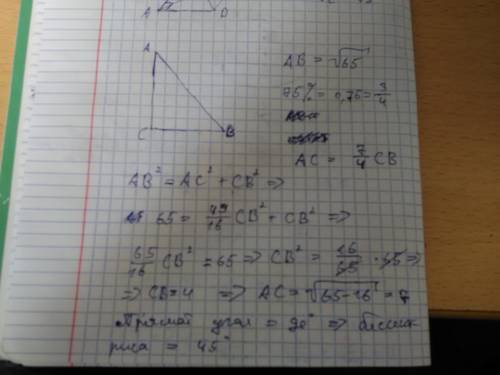 A D
A
C B
AB = √65
75% = 0,75 = 3/4
AC = 7/4 CB
AB² = AC² + CB² =>
65 = 49/16 CB² + CB² =>
65/16 CB² = 65 => CB² = 16/65 · 65 =>
=> CB = 4 => AC = √65-16 = 7
Прямой угол = 90° => биссект-
риса = 45°